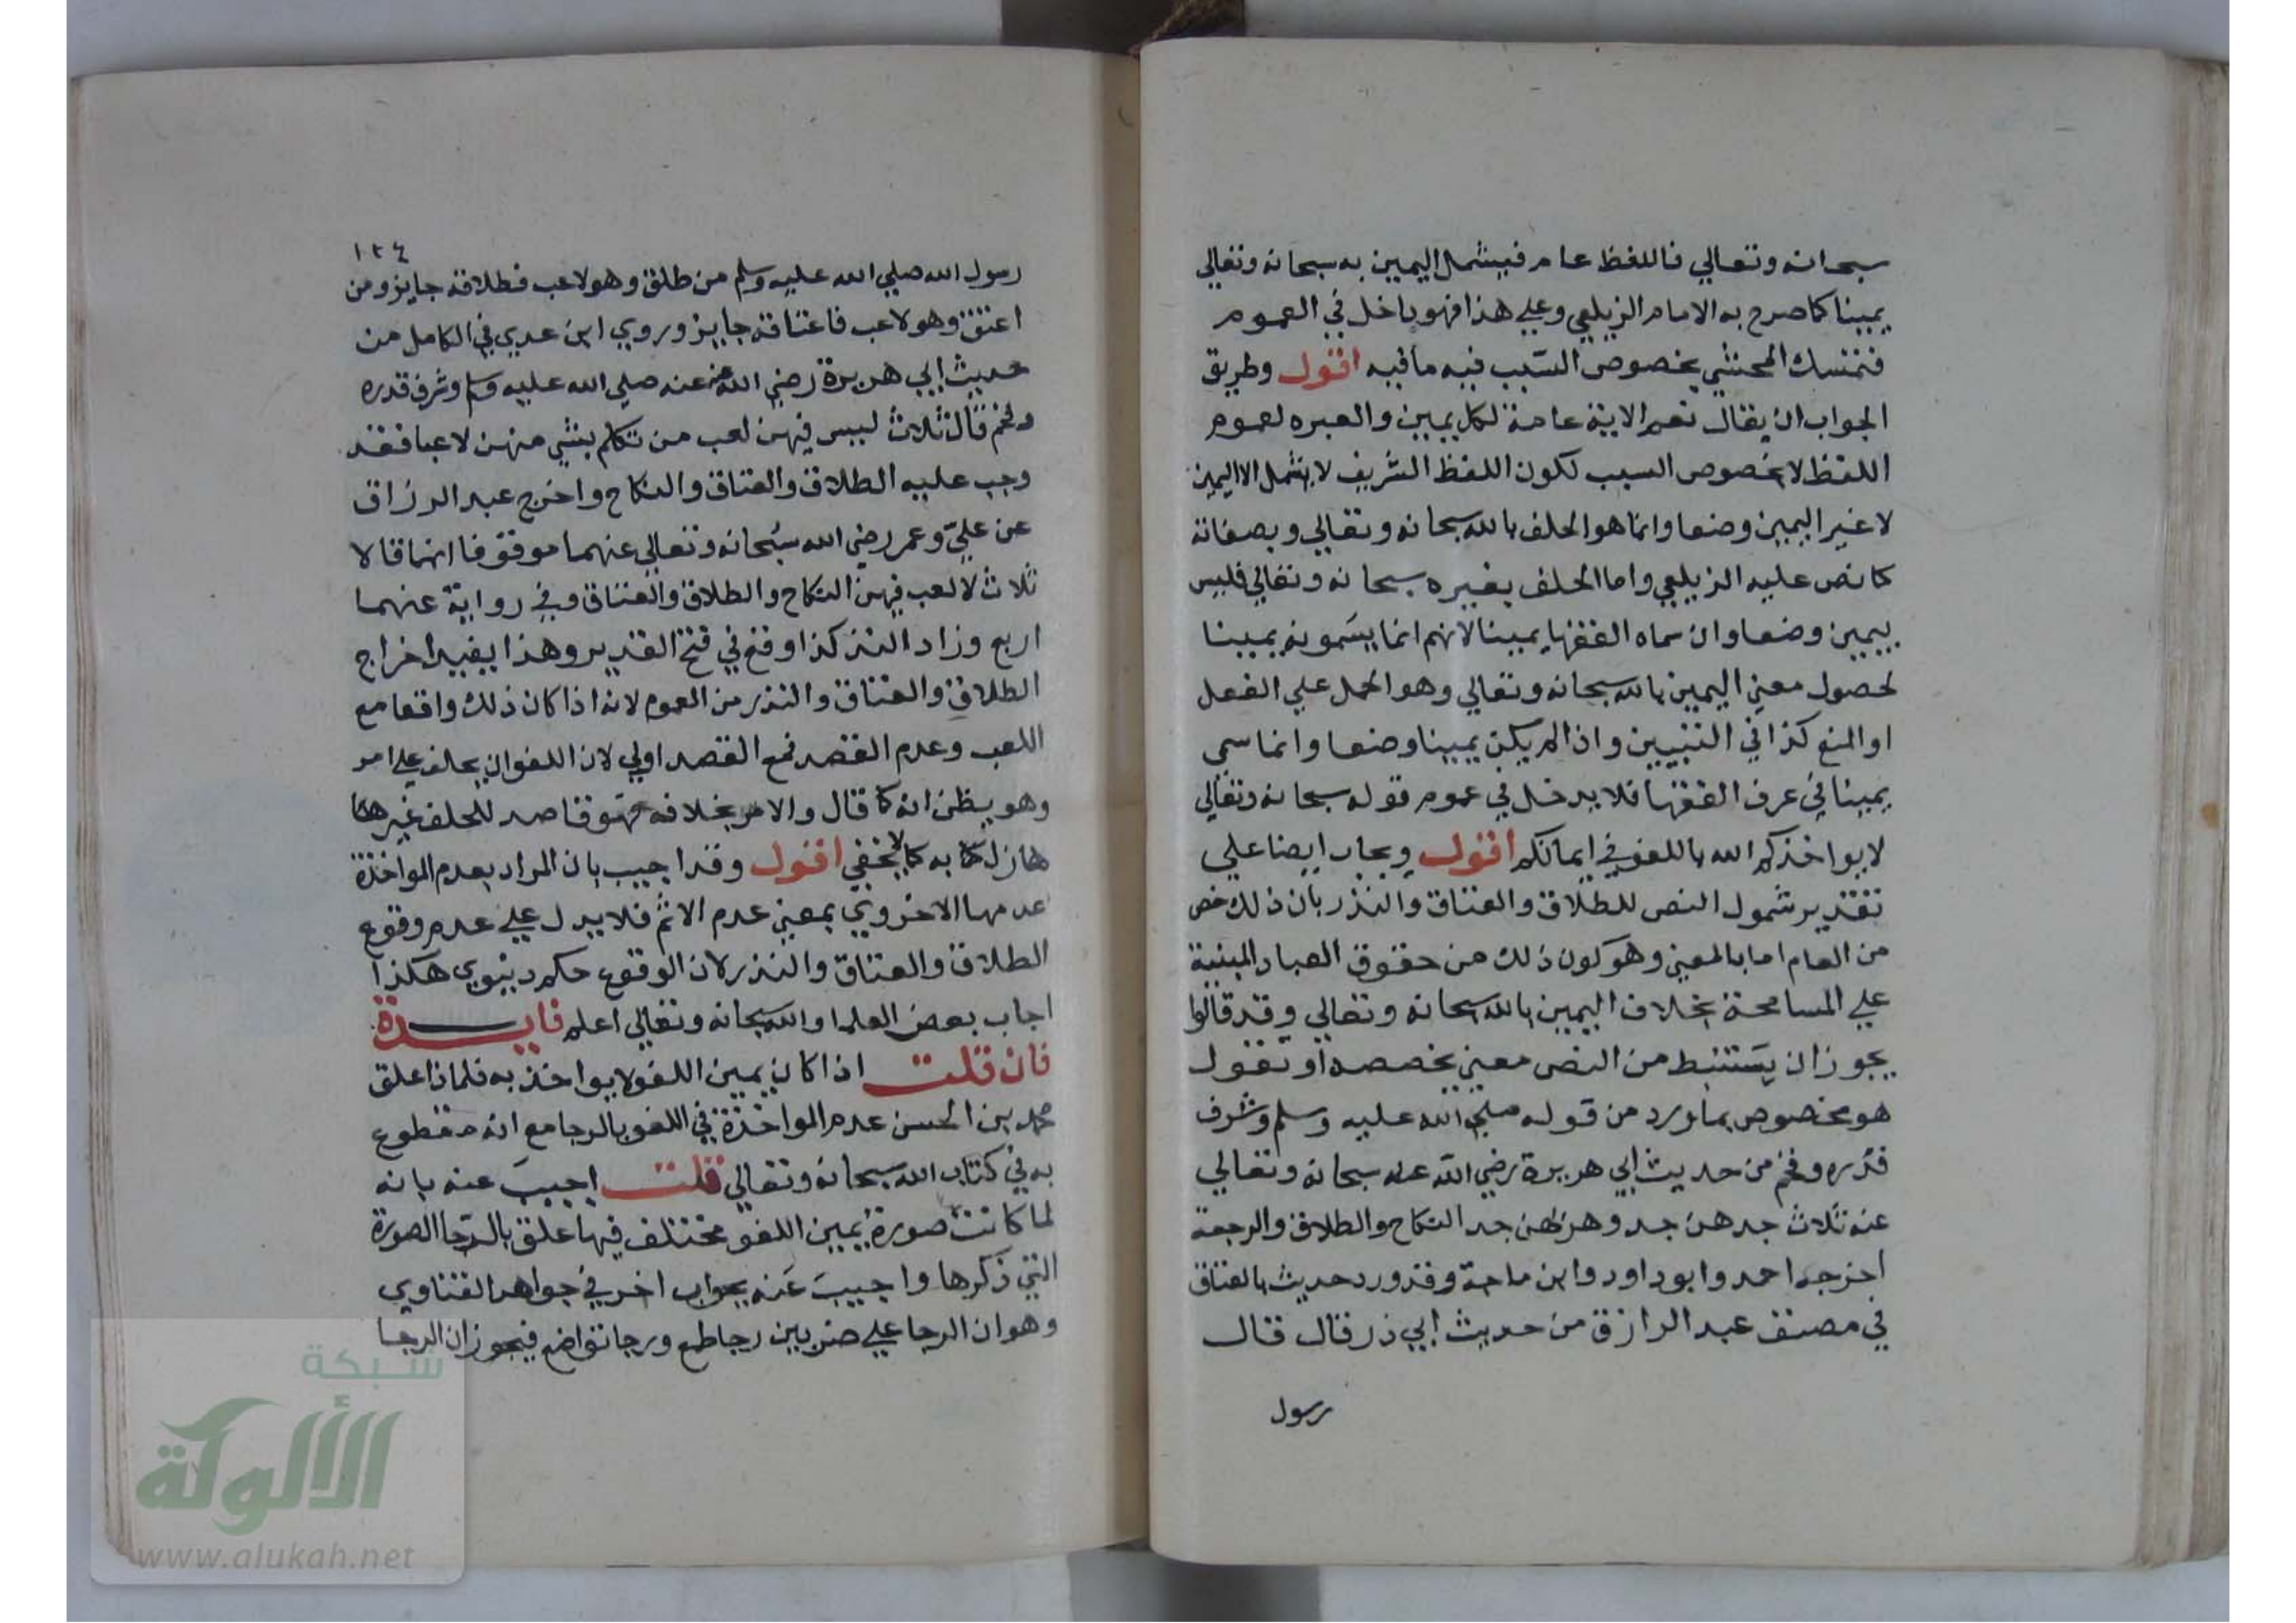 سبحانه وتعالي فاللفظ عام فيشمل اليمين به سبحانه وتعالي
يمينا كما صرح به الامام الزيلعي وعلي هذا فهو داخل في العموم
فتمسك المحشي بخصوص السّبب فيه ما فيه اقول وطريق
الجواب ان يقال نعم الاية عامة لكل يمين والعبره لعموم
اللفظ لا بخصوص السبب لكون اللفظ الشريف لا يشمل الا اليمين
لا غير اليمين وضعا وانما هو الحلف بالله سبحانه وتعالي وبصفاته
كما نص عليه الزيلعي واما الحلف بغيره سبحانه وتعالي فليس
بيمين وضعا وان سماه الفقها يمينا لانهم انما يسَمونه يمينا
لحصول معني اليمين بالله سبحانه وتعالي وهو الحمل علي الفعل
او المنع كذا في التبيين واذا لم يكن يمينا وضعا وانما سمي
يمينا في عرف الفقها فلا يدخل في عموم قوله سبحانه وتعالي
لا يواخذكم الله باللغو في ايمانكم اقول ويجاب ايضا علي
تقدير شمول النص للطلاق والعتاق والنذر بان ذلك خص
من العام اما بالمعني وهو كون ذلك من حقوق العباد المبنية
علي المسامحة بخلاف اليمين بالله سبحانه وتعالي وقد قالوا
يجوز ان يستنبط من النص معني يخصصه او نقول
هو مخصوص بما ورد من قوله صلي الله عليه وسلم وشرف
قدره وفخم من حديث ابي هريرة رضي الله عنه سبحانه وتعالي
عنه ثلاث جدهن جد وهزلهن جد النكاح والطلاق والرجعة
اخرجه احمد وابو داود وابن ماجة وقد ورد حديث بالعتاق
في مصنف عبد الرازق من حديث ابي ذر قال قال
رسول
١٢٤
رسول الله صلي الله عليه وسلم من طلق وهو لاعب فطلاقه جايز ومن
اعتق وهو لاعب فاعتاقه جايز وروي ابن عدي في الكامل من
حديث ابي هريرة رضي الله عنه عنه صلي الله عليه وسلم وشرف قدره
وفخم قال ثلاث ليس فيهن لعب من تكلم بشي منهن لاعبا فقد
وجب عليه الطلاق والعتاق والنكاح واخرج عبد الرزاق
عن عليّ وعمر رضي الله سبحانه وتعالي عنهما موقوفا انهما قالا
ثلاث لا لعب فيهن النكاح والطلاق والعتاق وفي رواية عنهما
اربع وزاد النذر كذا وقع في فتح القدير وهذا يفيد اخراج
الطلاق والعتاق والنذر من العموم لانه اذا كان ذلك واقعا مع
اللعب وعدم القصد فمع القصد اولي لان اللغو ان يحلف علي امر
وهو يظن انه كما قال والامر بخلافه فهو قاصد للحلف غير
هازل به كما لا يخفي اقول وقد اجيب بان المراد بعدم المواخذة
عدمها الاخروي بمعني عدم الاثم فلا يدل علي عدم وقوع
الطلاق والعتاق والنذر لان الوقوع حكم دنيوي هكذا
اجاب بعض العلما والله سبحانه وتعالي اعلم فايدة
فان قلت اذا كان يمين اللغو لا يواخذ به فلماذا علق
محمد بن الحسن عدم المواخذة في اللغو بالرجا مع انه مقطوع
به في كتاب الله سبحانه وتعالي قلت اجيبَ عنه بانه
لما كانت صورة يمين اللغو مختلف فيها علق بالرّجا الصورة
التي ذكرها واجيبَ عَنه بجواب اخر في جواهر الفتاوي
وهو ان الرجا علي ضربين رجا طمع ورجا تواضع فيجوز ان الرجا
شبكة
الألوكة
www.alukah.net